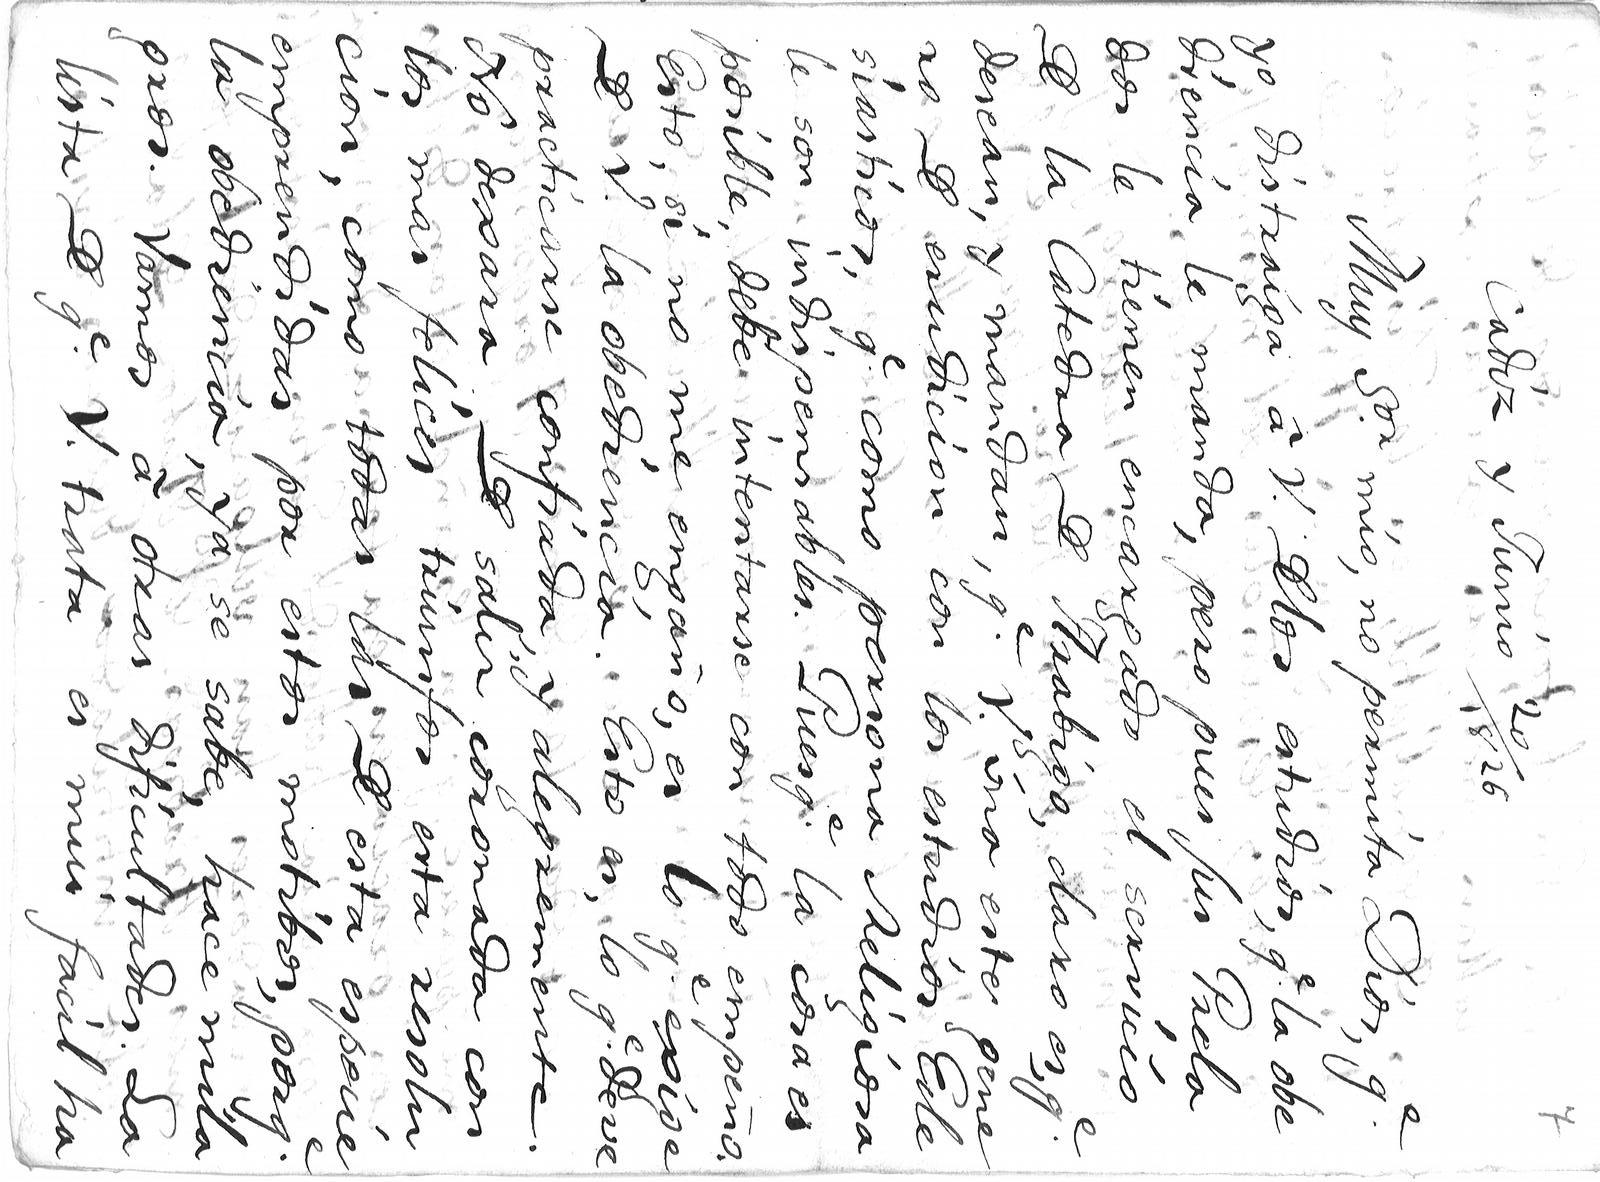 7
Cadiz y Junio 20/1826
Muy Sor. mio, no permita Dios, qe.
yo distraiga â V. D los estudios, qe. la obe
diencia le manda, pero pues sus Prela
dos le tienen encargado el servicio
D la Catedra D Arabigo, claro es, qe.
desean, y mandan, qe. V. siga este gene
ro D erudicion con los estudios Ecle
siasticos, qe. como persona Religiosa
le son indispensables. Puesqe. la cosa es
posible, debe intentarse con todo empeño.
Esto, si no me engaño, es lo qe. exige
D V. la obediencia. Esto es, lo qe. deve
practicarse confiada, y alegremente.
No dexara D salir coronada con
los mas felices triunfos esta resolu
cion, como todas las D esta especie
emprendidas por estos motibos, porqe.
la obediencia, ya se sabe, hace mila
gros. Vamos â otras dificultades. La
lista D qe. V. trata es mui facil ha